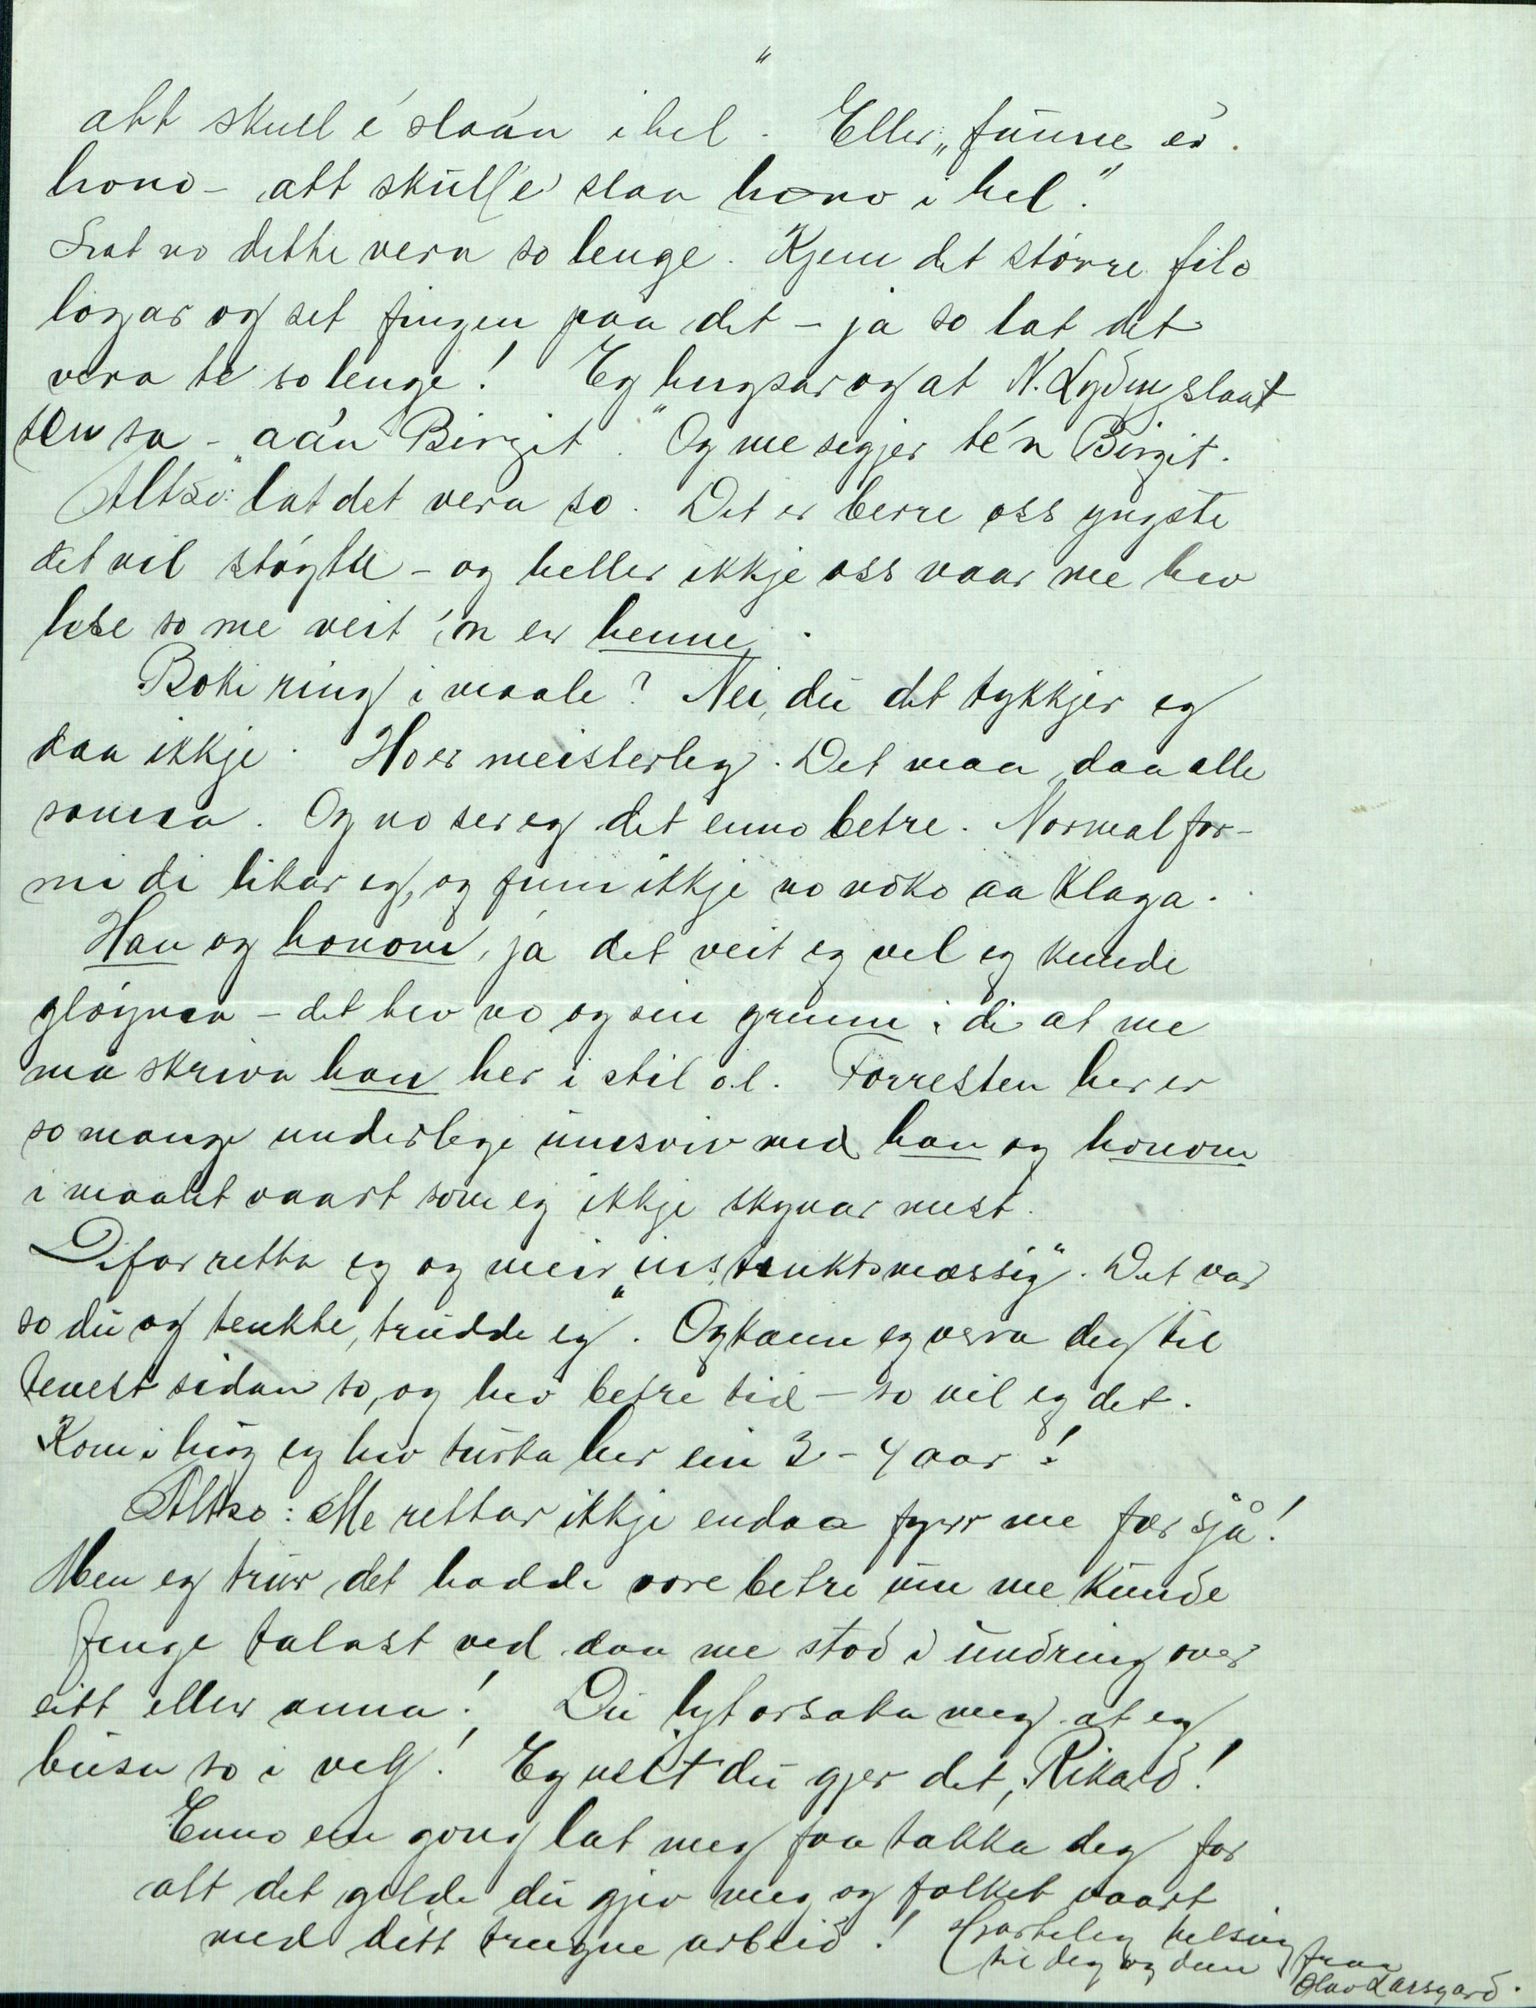 "
att skull é slaán ihel. Eller „funne eŕ
hono – att skull'e slaa hono i hel."
Lat no dette vera so lenge. Kjem det större filo
logar og set fingen paa det – ja so lat det
vera te so lenge! Eg hugsar og at N. Lydin slaat
ten sa – "aán Birgit". Og me segjer té'n Birgit.
Altso: lat det vera so. Det er berre oss yngste
det vil stöyta – og heller ikkje oss naar me hev
lese so me veit 'n er henne.
Boki ring i maale? Nei, du det tykkjer eg
daa ikkje. Ho er meisterleg. Det maa daa alle
sanna. Og no ser eg det enno betre. Normalfor-
mi di likar eg, og finn ikkje no noko aa klaga.
Han og honom, ja det veit eg vel eg kunde
glöyma – det hev no og sin grunn i di at me
ma skriva han her i stil o.l. Forresten her er
so mange underlege umsviv med han og honom
i maalet vaart som eg ikkje skynar mest.
Difor retta eg og meir "instinktsmæssig". Det var
so du og tenkte, trudde eg. Og kann eg vera deg til
tenest sidan so, og hev betre tid – so vil eg det.
Kom i hug eg hev turka her ein 3 – 4 aar!
Altso: Me rettar ikkje endaa fyrr me fær sjå!
Men eg trur det hadde vore betre um me kunde
fenge talast ved daa me stod i undring over
eitt eller anna! Du lyt orsaka meg at eg
busa so i veg! Eg veit du gjer det, Rikard!
Enno ein gong lat meg faa takka deg for
alt det gilde du gjev meg og folket vaart
med ditt trugne arbeid! Hjarteleg helsing
til deg og dem fraa
Olav Larsgard.